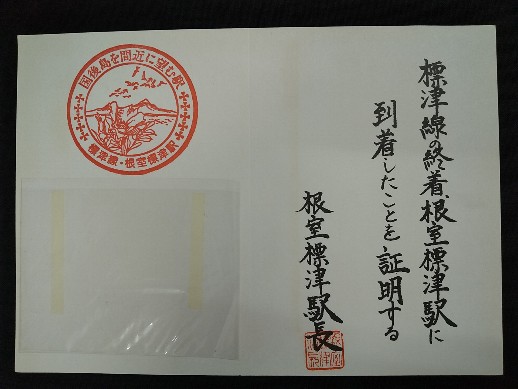 標津線の終着、根室標津駅に
到着したことを証明する
根室標津駅長
国後島を間近に望む駅
標津線・根室標津駅